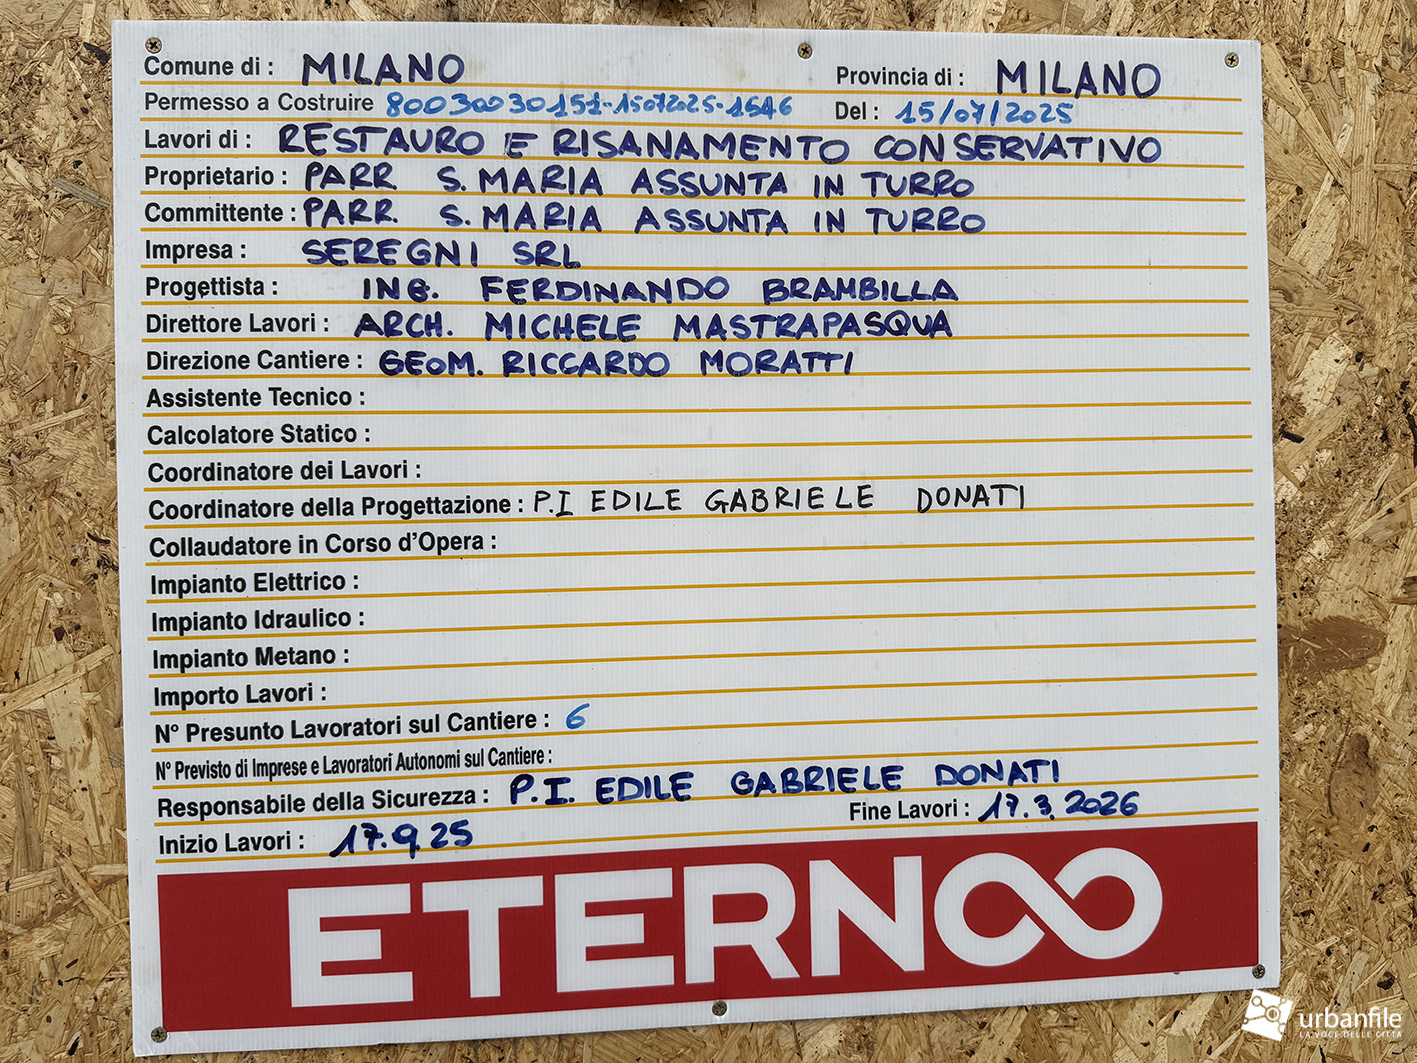 Comune di : MILANO Provincia di : MILANO
Permesso a Costruire 80030030151-15072025-1546 Del : 15/07/2025
Lavori di : RESTAURO E RISANAMENTO CONSERVATIVO
Proprietario : PARR S. MARIA ASSUNTA IN TURRO
Committente : PARR. S. MARIA ASSUNTA IN TURRO
Impresa : SEREGNI SRL
Progettista : ING. FERDINANDO BRAMBILLA
Direttore Lavori : ARCH. MICHELE MASTRAPASQUA
Direzione Cantiere : GEOM. RICCARDO MORATTI
Assistente Tecnico :
Calcolatore Statico :
Coordinatore dei Lavori :
Coordinatore della Progettazione : P.I EDILE GABRIELE DONATI
Collaudatore in Corso d'Opera :
Impianto Elettrico :
Impianto Idraulico :
Impianto Metano :
Importo Lavori :
N° Presunto Lavoratori sul Cantiere : 6
N° Previsto di Imprese e Lavoratori Autonomi sul Cantiere :
Responsabile della Sicurezza : P.I. EDILE GABRIELE DONATI
Inizio Lavori : 17.9.25 Fine Lavori : 17.3.2026
ETERNOO
urbanfile
LA VOCE DELLE CITTÀ